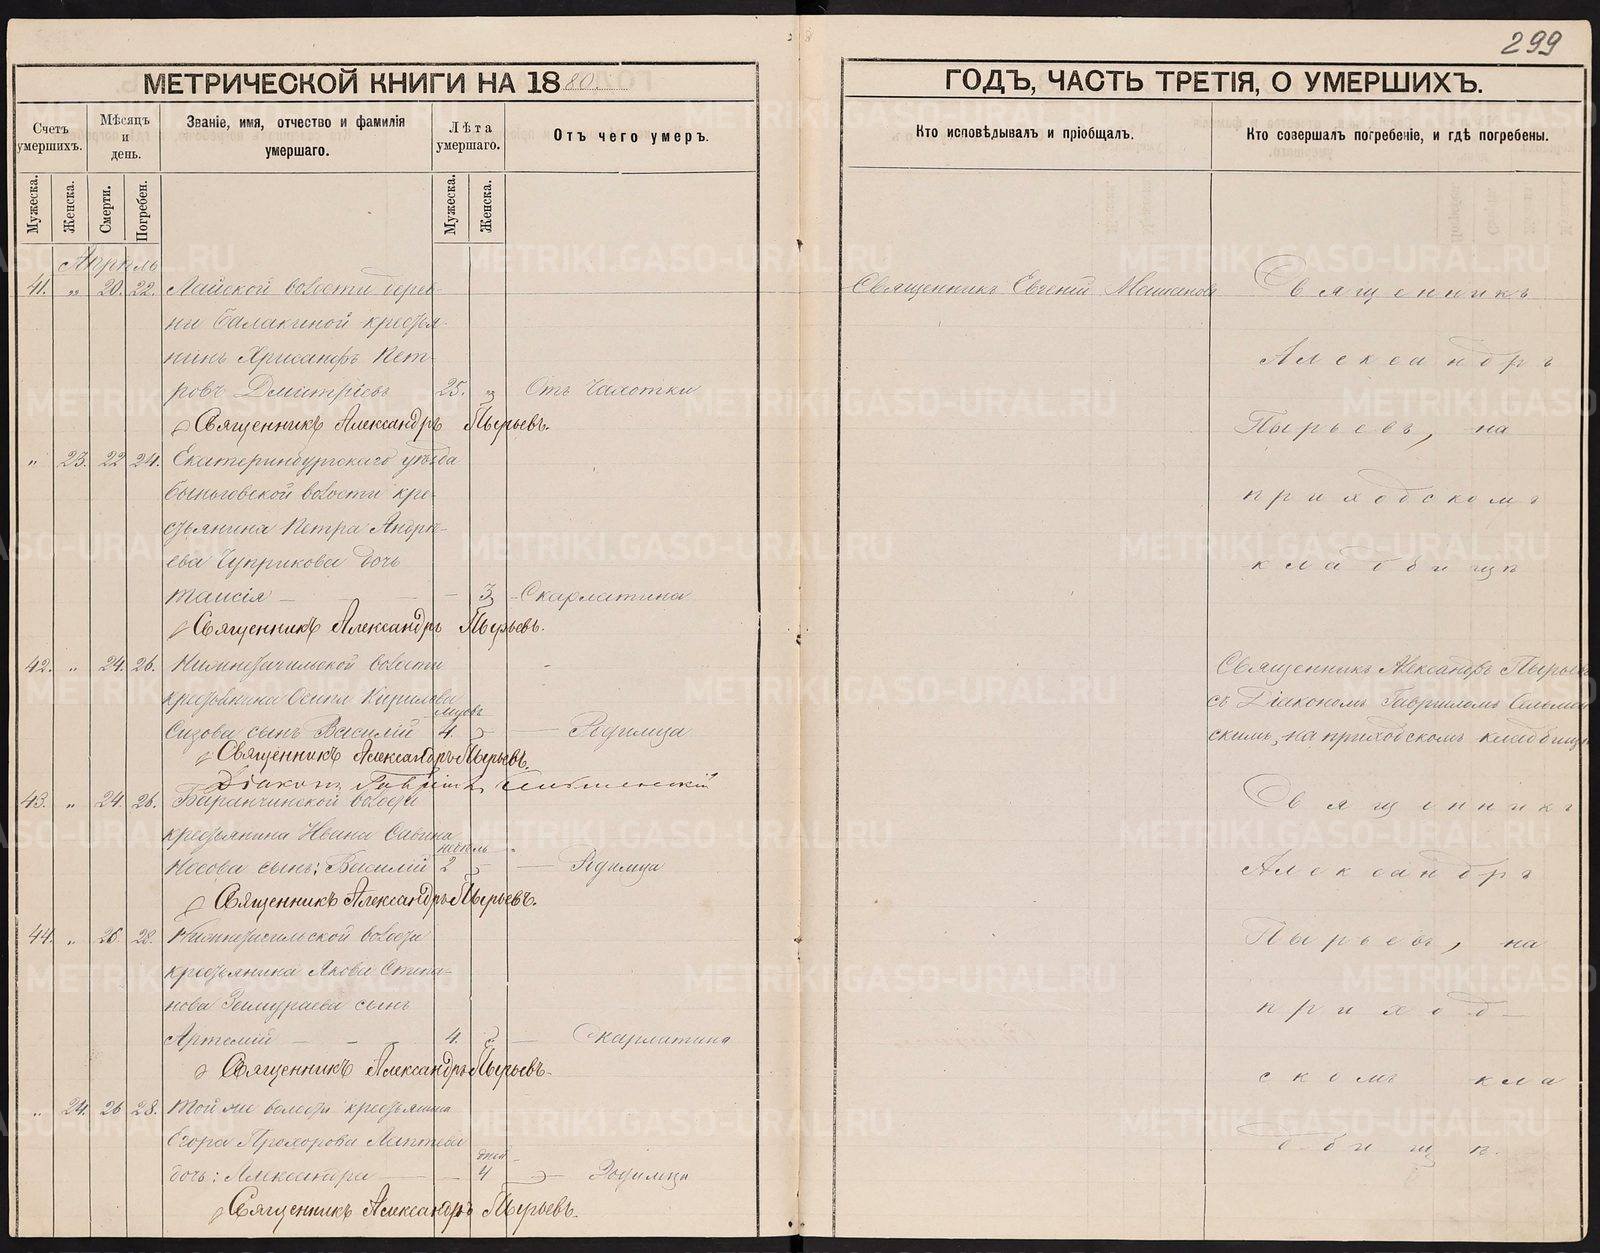 299
МЕТРИЧЕСКОЙ КНИГИ НА 1880.
ГОДЪ, ЧАСТЬ ТРЕТІЯ, О УМЕРШИХЪ.
Счетъ умершихъ.
Мѣсяцъ и день.
Званіе, имя, отчество и фамилія умершаго.
Лѣта умершаго.
Отъ чего умеръ.
Кто исповѣдывалъ и пріобщалъ.
Кто совершалъ погребеніе, и гдѣ погребены.
Мужеска.
Женска.
Смерти.
Погребен.
Мужеска.
Женска.
Апрѣль
41. " 20. 22. Лайской волости дерев-
ни Балакиной крестья-
нинъ Хрисанфъ Пет-
ровъ Дмитріевъ 25. " Отъ Чахотки
Священникъ Александръ Пырьевъ.
" 23. 22 24. Екатеринбургскаго уѣзда
Быньговской волости кре-
стьянина Петра Андре-
ева Чуприкова дочь
Таисія — — 3 - Скарлатина
Священникъ Александръ Пырьевъ.
42. " 24. 26. Нижнетагильской волости
крестьянина Осипа Кирилова
мѣсяцъ
Сизова сынъ Василій 4. — Родимца
Священникъ Александръ Пырьевъ.
Діаконъ Гавріилъ
43. " 24. 26. Баранчинской волости
крестьянина Ивана Савина
недѣль
Носова сынъ: Василій 2 — Родимца
Священникъ Александръ Пырьевъ.
44. " 26 28. Нижнетагильской волости
крестьянина Якова Степа-
нова сынъ
Артемій — - - 4. — Скарлатина
Священникъ Александръ Пырьевъ.
" 24. 26 28. Той же волости крестьянина
Егора Прохорова Лаптева
дней
дочь: Александра — — 4 — Родимца
Священникъ Александръ Пырьевъ.
Священникъ Евгеній
Священникъ
Александръ
Пырьевъ, на
приходскомъ
кладбищѣ
Священникъ Александръ Пырьевъ
съ Діакономъ Гавріиломъ
скимъ, на приходскомъ кладбищѣ
Священникъ
Александръ
Пырьевъ, на
приход-
скомъ кла
дбищѣ.
METRIKI.GASO-URAL.RU